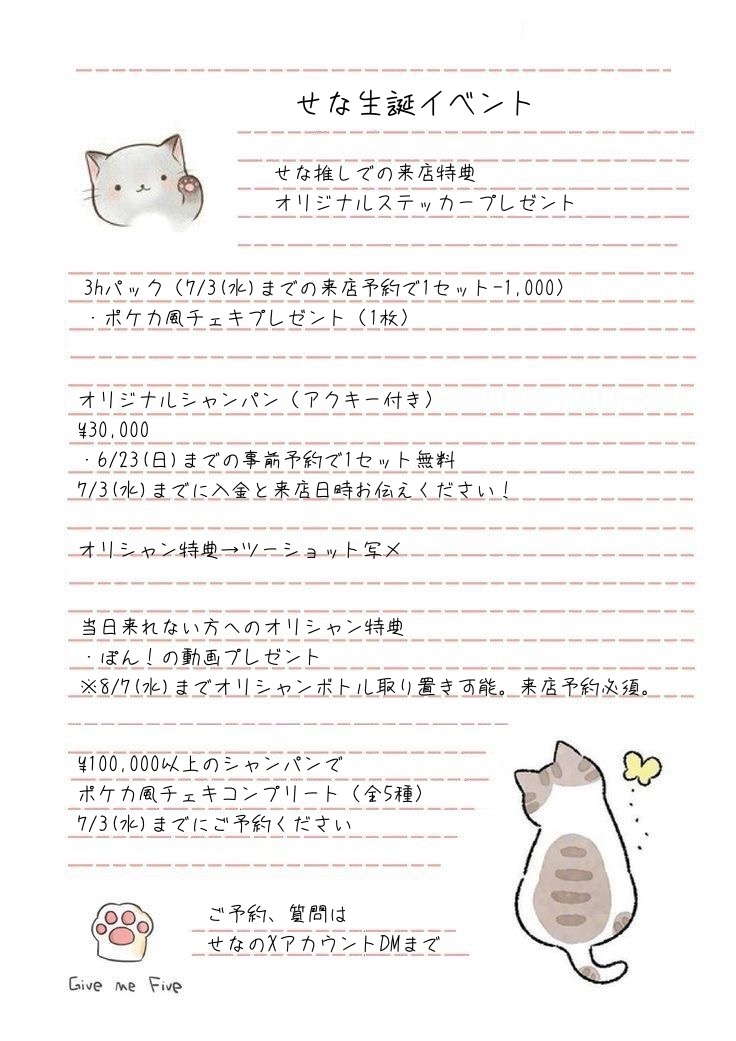 せな生誕イベント
せな推しでの来店特典
オリジナルステッカープレゼント
3hパック（7/3(水)までの来店予約で1セット-1,000）
・ポケカ風チェキプレゼント（1枚）
オリジナルシャンパン（アクキー付き）
¥30,000
・6/23(日)までの事前予約で1セット無料
7/3(水)までに入金と来店日時お伝えください！
オリシャン特典→ツーショット写メ
当日来れない方へのオリシャン特典
・ぽん！の動画プレゼント
※8/7(水)までオリシャンボトル取り置き可能。来店予約必須。
¥100,000以上のシャンパンで
ポケカ風チェキコンプリート（全5種）
7/3(水)までにご予約ください
ご予約、質問は
せなのXアカウントDMまで
Give me Five